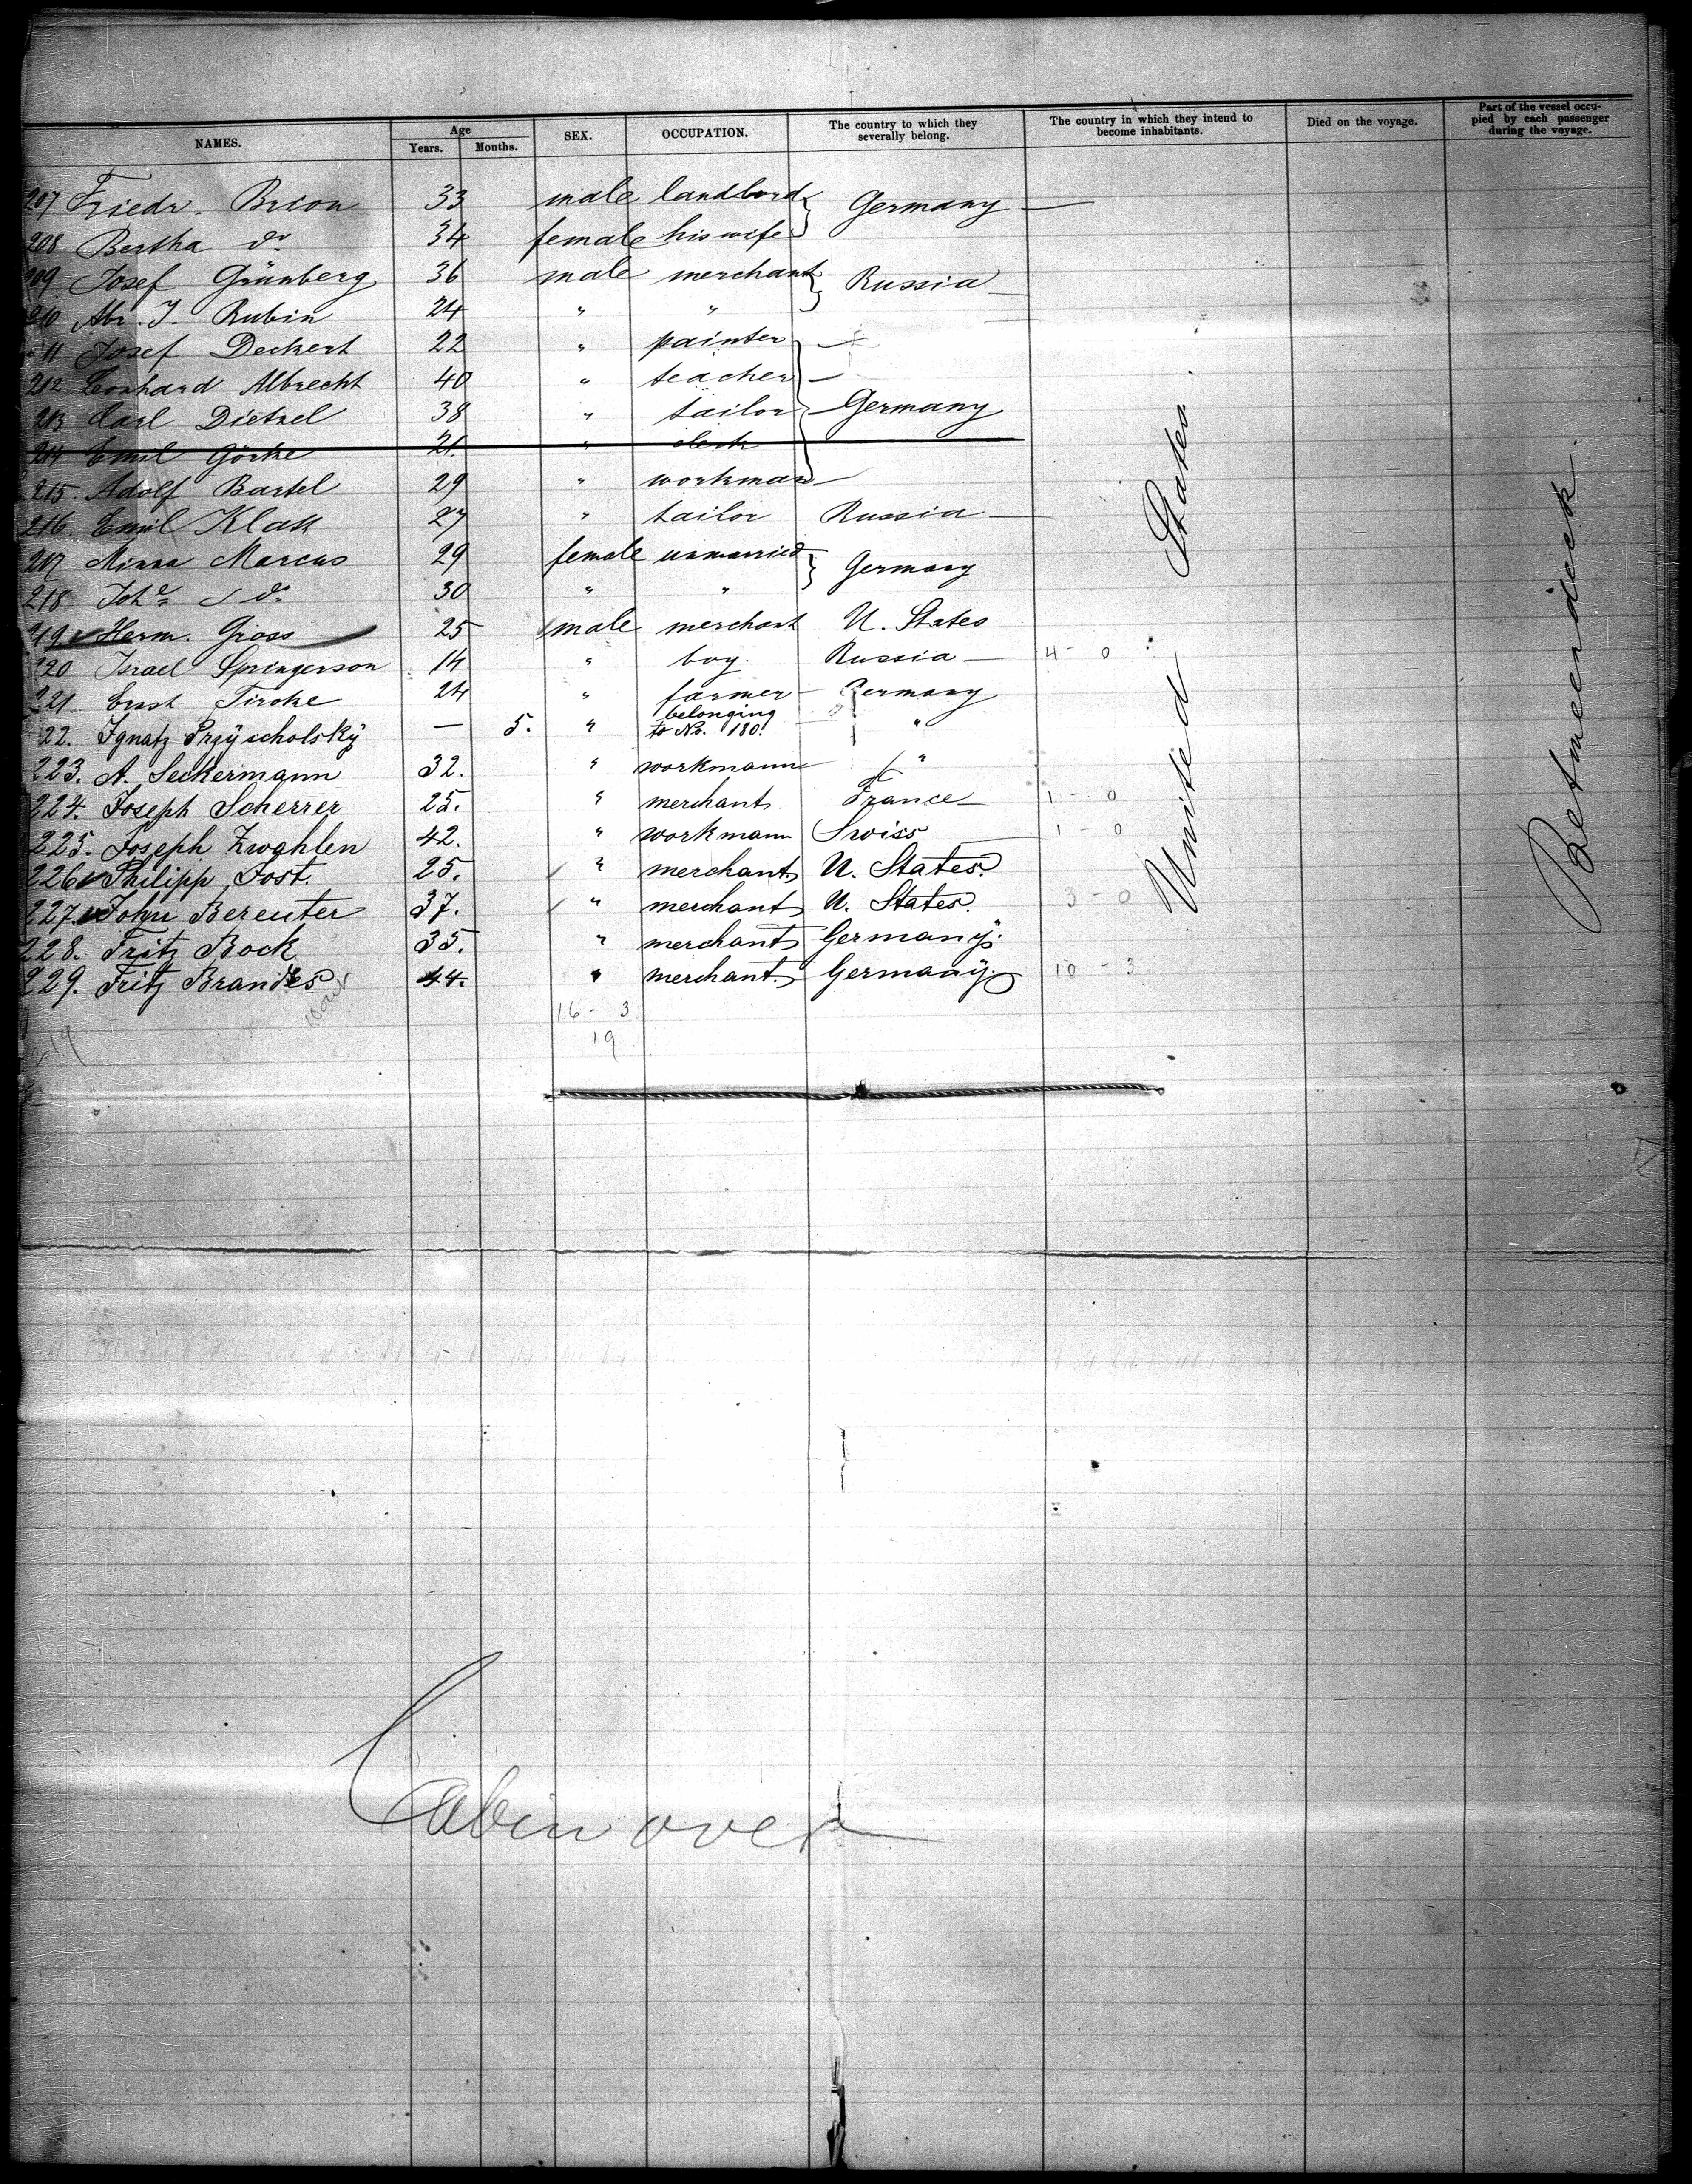 NAMES. Age Years. Months. SEX. OCCUPATION. The country to which they severally belong. The country in which they intend to become inhabitants. Died on the voyage. Part of the vessel occupied by each passenger during the voyage.
207 Friedr. Brion 33 male landlord Germany
208 Bertha do 34 female his wife
209 Josef Grünberg 36 male merchant Russia
210 Abr. J. Rubin 24 " "
11 Josef Deckert 22 " painter
212 Leonhard Albrecht 40 " teacher
213 Carl Dietzel 38 " tailor Germany
214 Emil Görke 21. " clerk
215. Adolf Bartel 29 " workman
216. Emil Klatt 27 " tailor Russia
217 Minna Marcus 29 female unmarried Germany
218 Joh. do 30 " "
219. Herm. Gross 25 male merchant U. States
220 Israel Springerson 14 " boy. Russia 4 - 0
221. Ernst Tiroke 24 " farmer Germany
22. Ignatz Przÿscholskÿ — 5. " belonging to No. 180. "
223. A. Seckermann 32. " workmann "
224. Joseph Scherrer 25. " merchant France 1 - 0
225. Joseph Zwahlen 42. " workmann Swiss 1 - 0
226. Philipp Jost. 25. " merchant U. States.
227. John Bereuter 37. " merchant U. States. 3 - 0
228. Fritz Bock 35. " merchant Germanÿ.
229. Fritz Brandes 44. " merchant. Germanÿ. 10 - 3
16 - 3
19
219
United States.
Betweendeck.
Cabin over